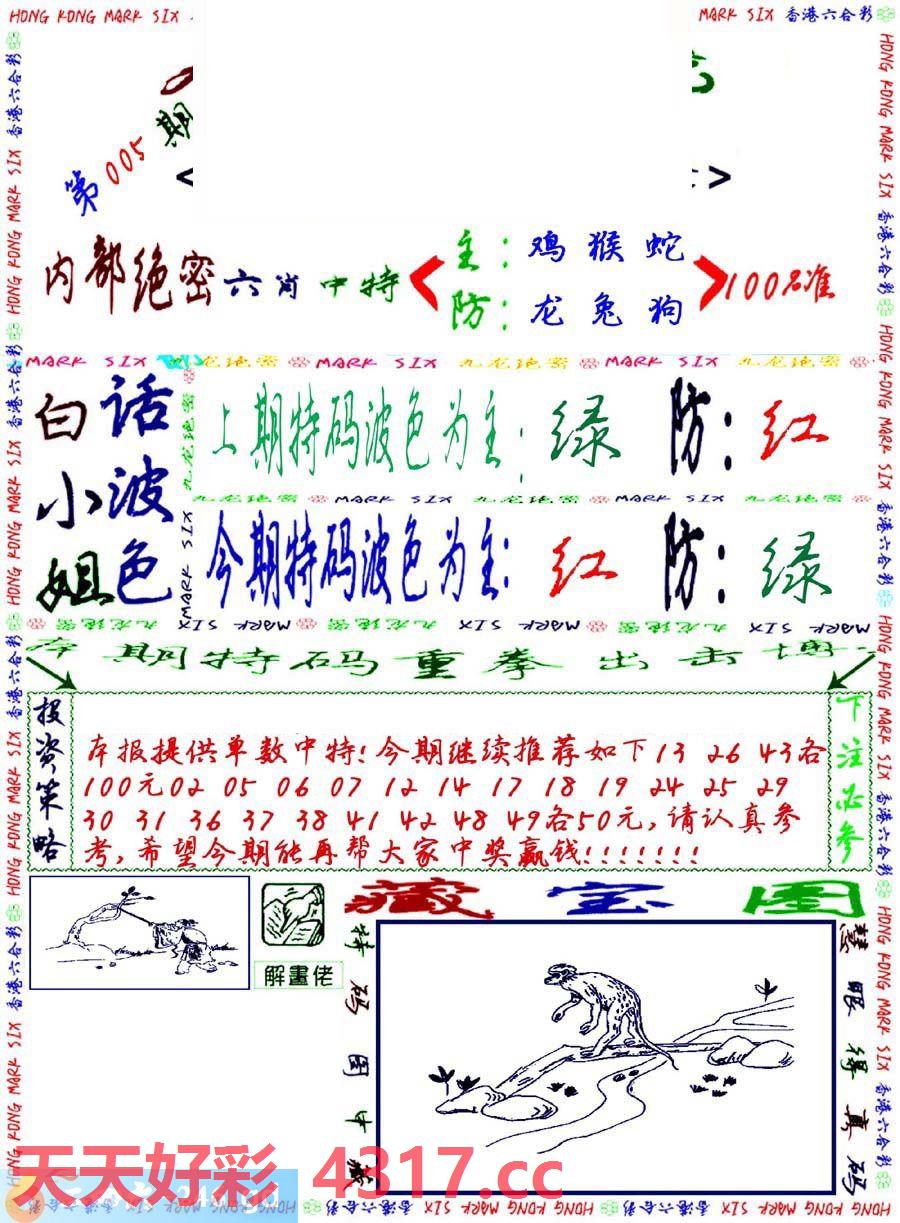 HONG KONG MARK SIX
MARK SIX 香港六合彩
第005期
< >
内部绝密六肖中特
主:鸡猴蛇
防:龙兔狗
100%准
MARK SIX 九龙绝密 MARK SIX 九龙绝密 MARK SIX 九龙绝密
白话
小波
姐色
上期特码波色为主:绿 防:红
九龙绝密 MARK SIX 九龙绝密 MARK SIX 九龙绝密
今期特码波色为主:红 防:绿
MARK SIX 九龙绝密 MARK SIX 九龙绝密 MARK SIX 九龙绝密 MARK SIX
本期特码重拳出击
投资策略
本报提供单数中特!今期继续推荐如下13 26 43各
100元02 05 06 07 12 14 17 18 19 24 25 29
30 31 36 37 38 41 42 48 49各50元,请认真参
考,希望今期能再帮大家中奖赢钱!!!!!!!
下注必参
藏宝图
解畫佬
特码图中藏
慧眼得真码
天天好彩 4317.cc
HONG KONG MARK SIX 香港六合彩 HONG KONG MARK SIX 香港六合彩